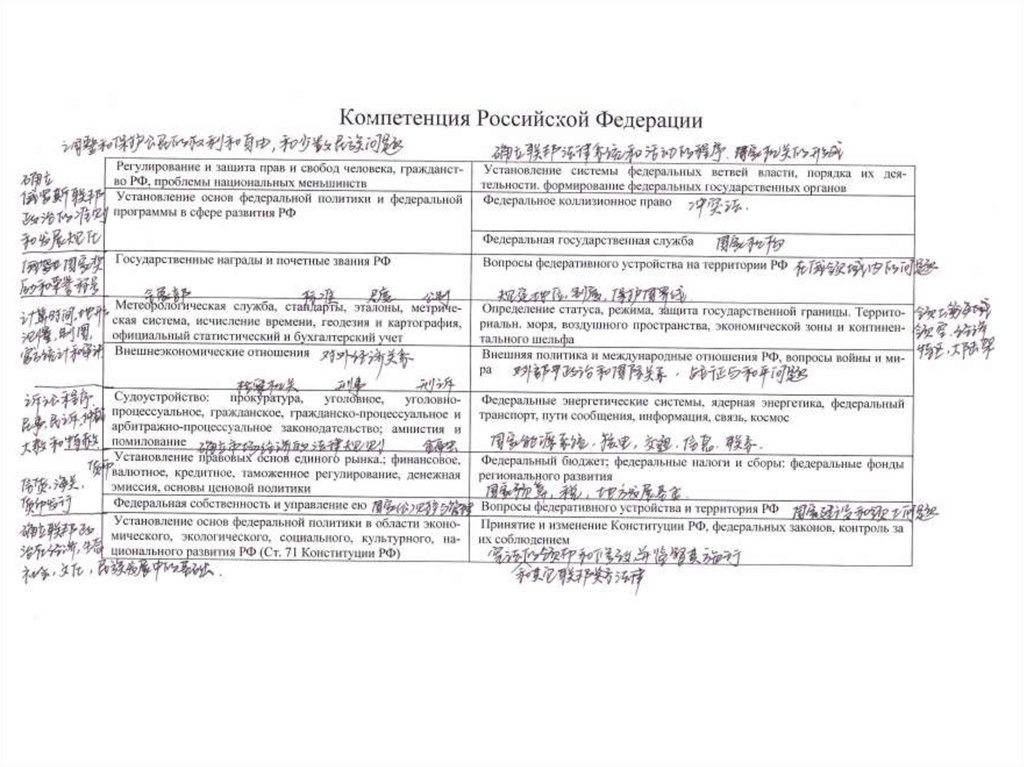 Компетенция Российской Федерации
调整和保护公民的权利和自由,和少数民族问题
确立联邦法律系统和活动的程序.国家机关的形成
Регулирование и защита прав и свобод человека, гражданст-
во РФ, проблемы национальных меньшинств
Установление системы федеральных ветвей власти, порядка их дея-
тельности. формирование федеральных государственных органов
确立
俄罗斯联邦
政治的准则
和发展规化
Установление основ федеральной политики и федеральной
программы в сфере развития РФ
Федеральное коллизионное право 冲突法.
Федеральная государственная служба 国家机构
Государственные награды и почетные звания РФ
Вопросы федеративного устройства на территории РФ 在俄领域内的问题
和荣誉称号
标准
规定地位,制度,保护国界域
Метеорологическая служба, стандарты, эталоны, метриче-
ская система, исчисление времени, геодезия и картография,
официальный статистический и бухгалтерский учет
Определение статуса, режима, защита государственной границы. Террито-
риальн. моря, воздушного пространства, экономической зоны и континен-
тального шельфа
计算时间,地形
领空,经济
特区,大陆架
Внешнеэкономические отношения 对外经济关系
Внешняя политика и международные отношения РФ, вопросы войны и ми-
ра 对外部政治和国际关系,战争与和平问题
检察机关 刑事 刑诉
Судоустройство: прокуратура, уголовное, уголовно-
процессуальное, гражданское, гражданско-процессуальное и
арбитражно-процессуальное законодательство; амнистия и
помилование 确立市场经济的法律规则
Федеральные энергетические системы, ядерная энергетика, федеральный
транспорт, пути сообщения, информация, связь, космос
国家能源系统,核电,交通,信息,联系.
诉讼程序.
大赦和特赦
Установление правовых основ единого рынка.; финансовое,
валютное, кредитное, таможенное регулирование, денежная
эмиссия, основы ценовой политики
Федеральный бюджет; федеральные налоги и сборы: федеральные фонды
регионального развития
国家预算,税,地方发展基金.
货币
信贷,海关,
货币发行
Федеральная собственность и управление ею
Вопросы федеративного устройства и территория РФ 国家建设和领土问题
Установление основ федеральной политики в области эконо-
мического, экологического, социального, культурного, на-
ционального развития РФ (Ст. 71 Конституции РФ)
Принятие и изменение Конституции РФ, федеральных законов, контроль за
их соблюдением
确立联邦政
治在经济,生态
社会,文化,民族发展中的基础.
宪法的颁布和修改,并监督其施行
和其它联邦法律